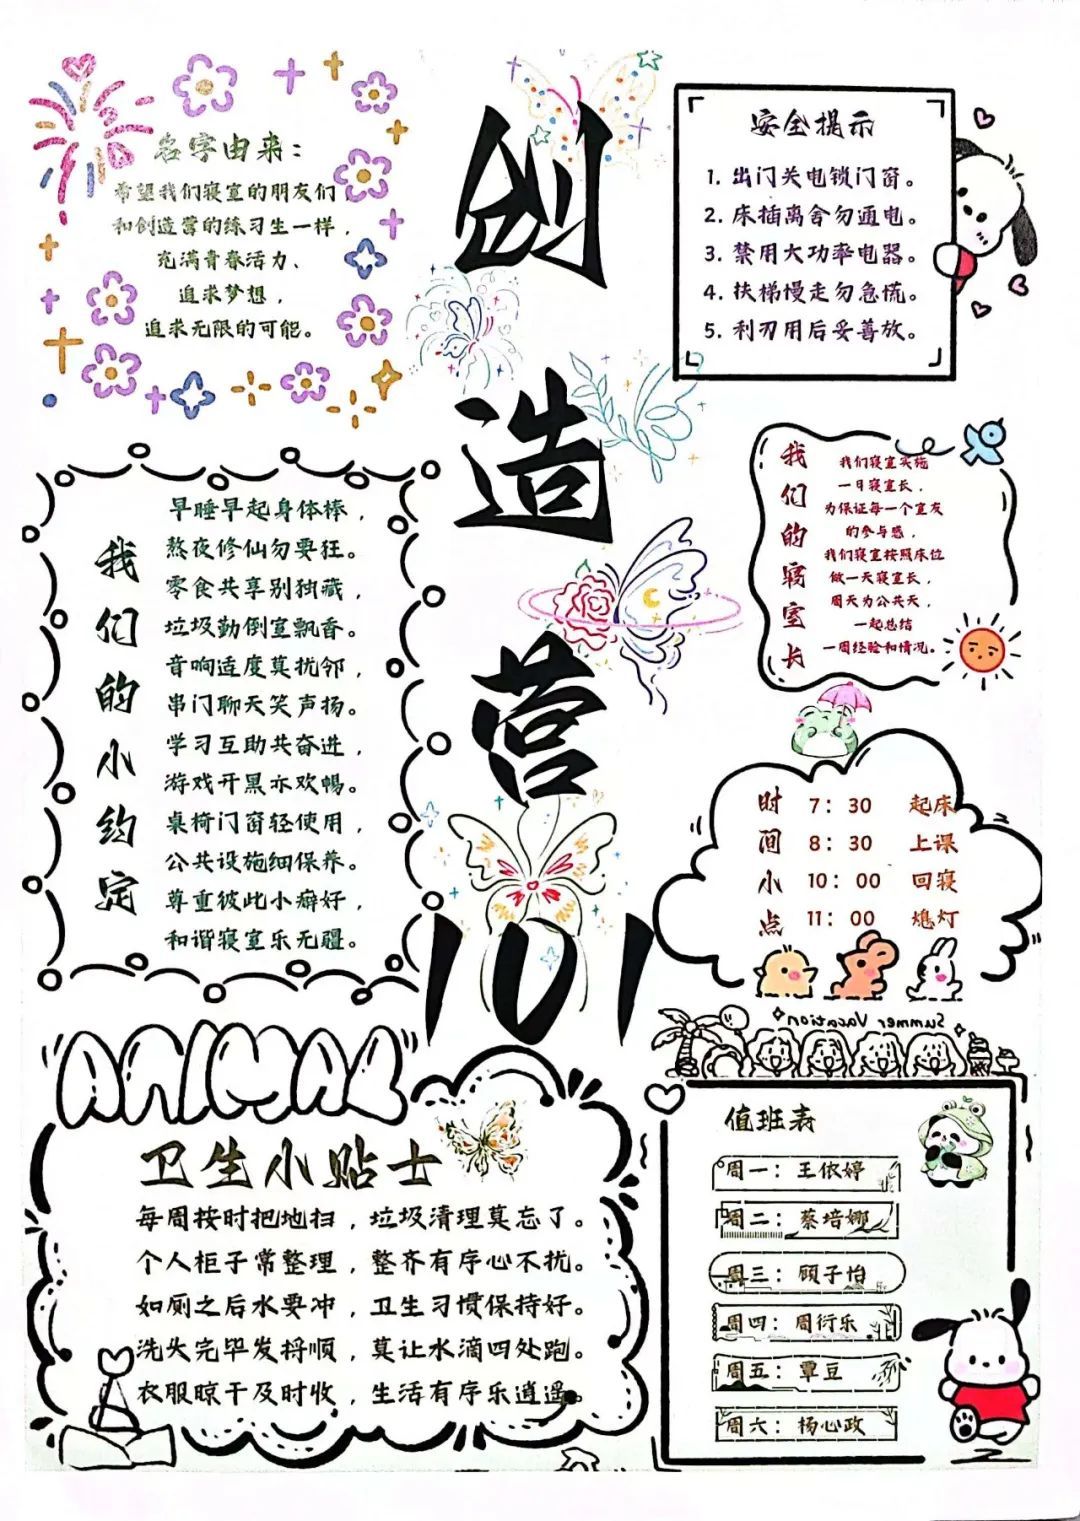 创造营101
名字由来：
希望我们寝室的朋友们
和创造营的练习生一样，
充满青春活力、
追求梦想，
追求无限的可能。
安全提示
1. 出门关电锁门窗。
2. 床插离舍勿通电。
3. 禁用大功率电器。
4. 扶梯慢走勿急慌。
5. 利刃用后妥善放。
我们的小约定
早睡早起身体棒，
熬夜修仙勿要狂。
零食共享别独藏，
垃圾勤倒室飘香。
音响适度莫扰邻，
串门聊天笑声扬。
学习互助共奋进，
游戏开黑亦欢畅。
桌椅门窗轻使用，
公共设施细保养。
尊重彼此小癖好，
和谐寝室乐无疆。
我们的寝室长
我们寝室实施
一日寝室长，
为保证每一个室友
的参与感，
我们寝室按照床位
做一天寝室长，
周天为公共天，
一起总结
一周经验和情况。
时间小点
7：30 起床
8：30 上课
10：00 回寝
11：00 熄灯
Summer Vacation
ANIMAL
卫生小贴士
每周按时把地扫，垃圾清理莫忘了。
个人柜子常整理，整齐有序心不扰。
如厕之后水要冲，卫生习惯保持好。
洗头完毕发捋顺，莫让水滴四处跑。
衣服晾干及时收，生活有序乐逍遥。
值班表
周一：王依婷
周二：蔡培娜
周三：顾子怡
周四：周衍乐
周五：覃豆
周六：杨心政